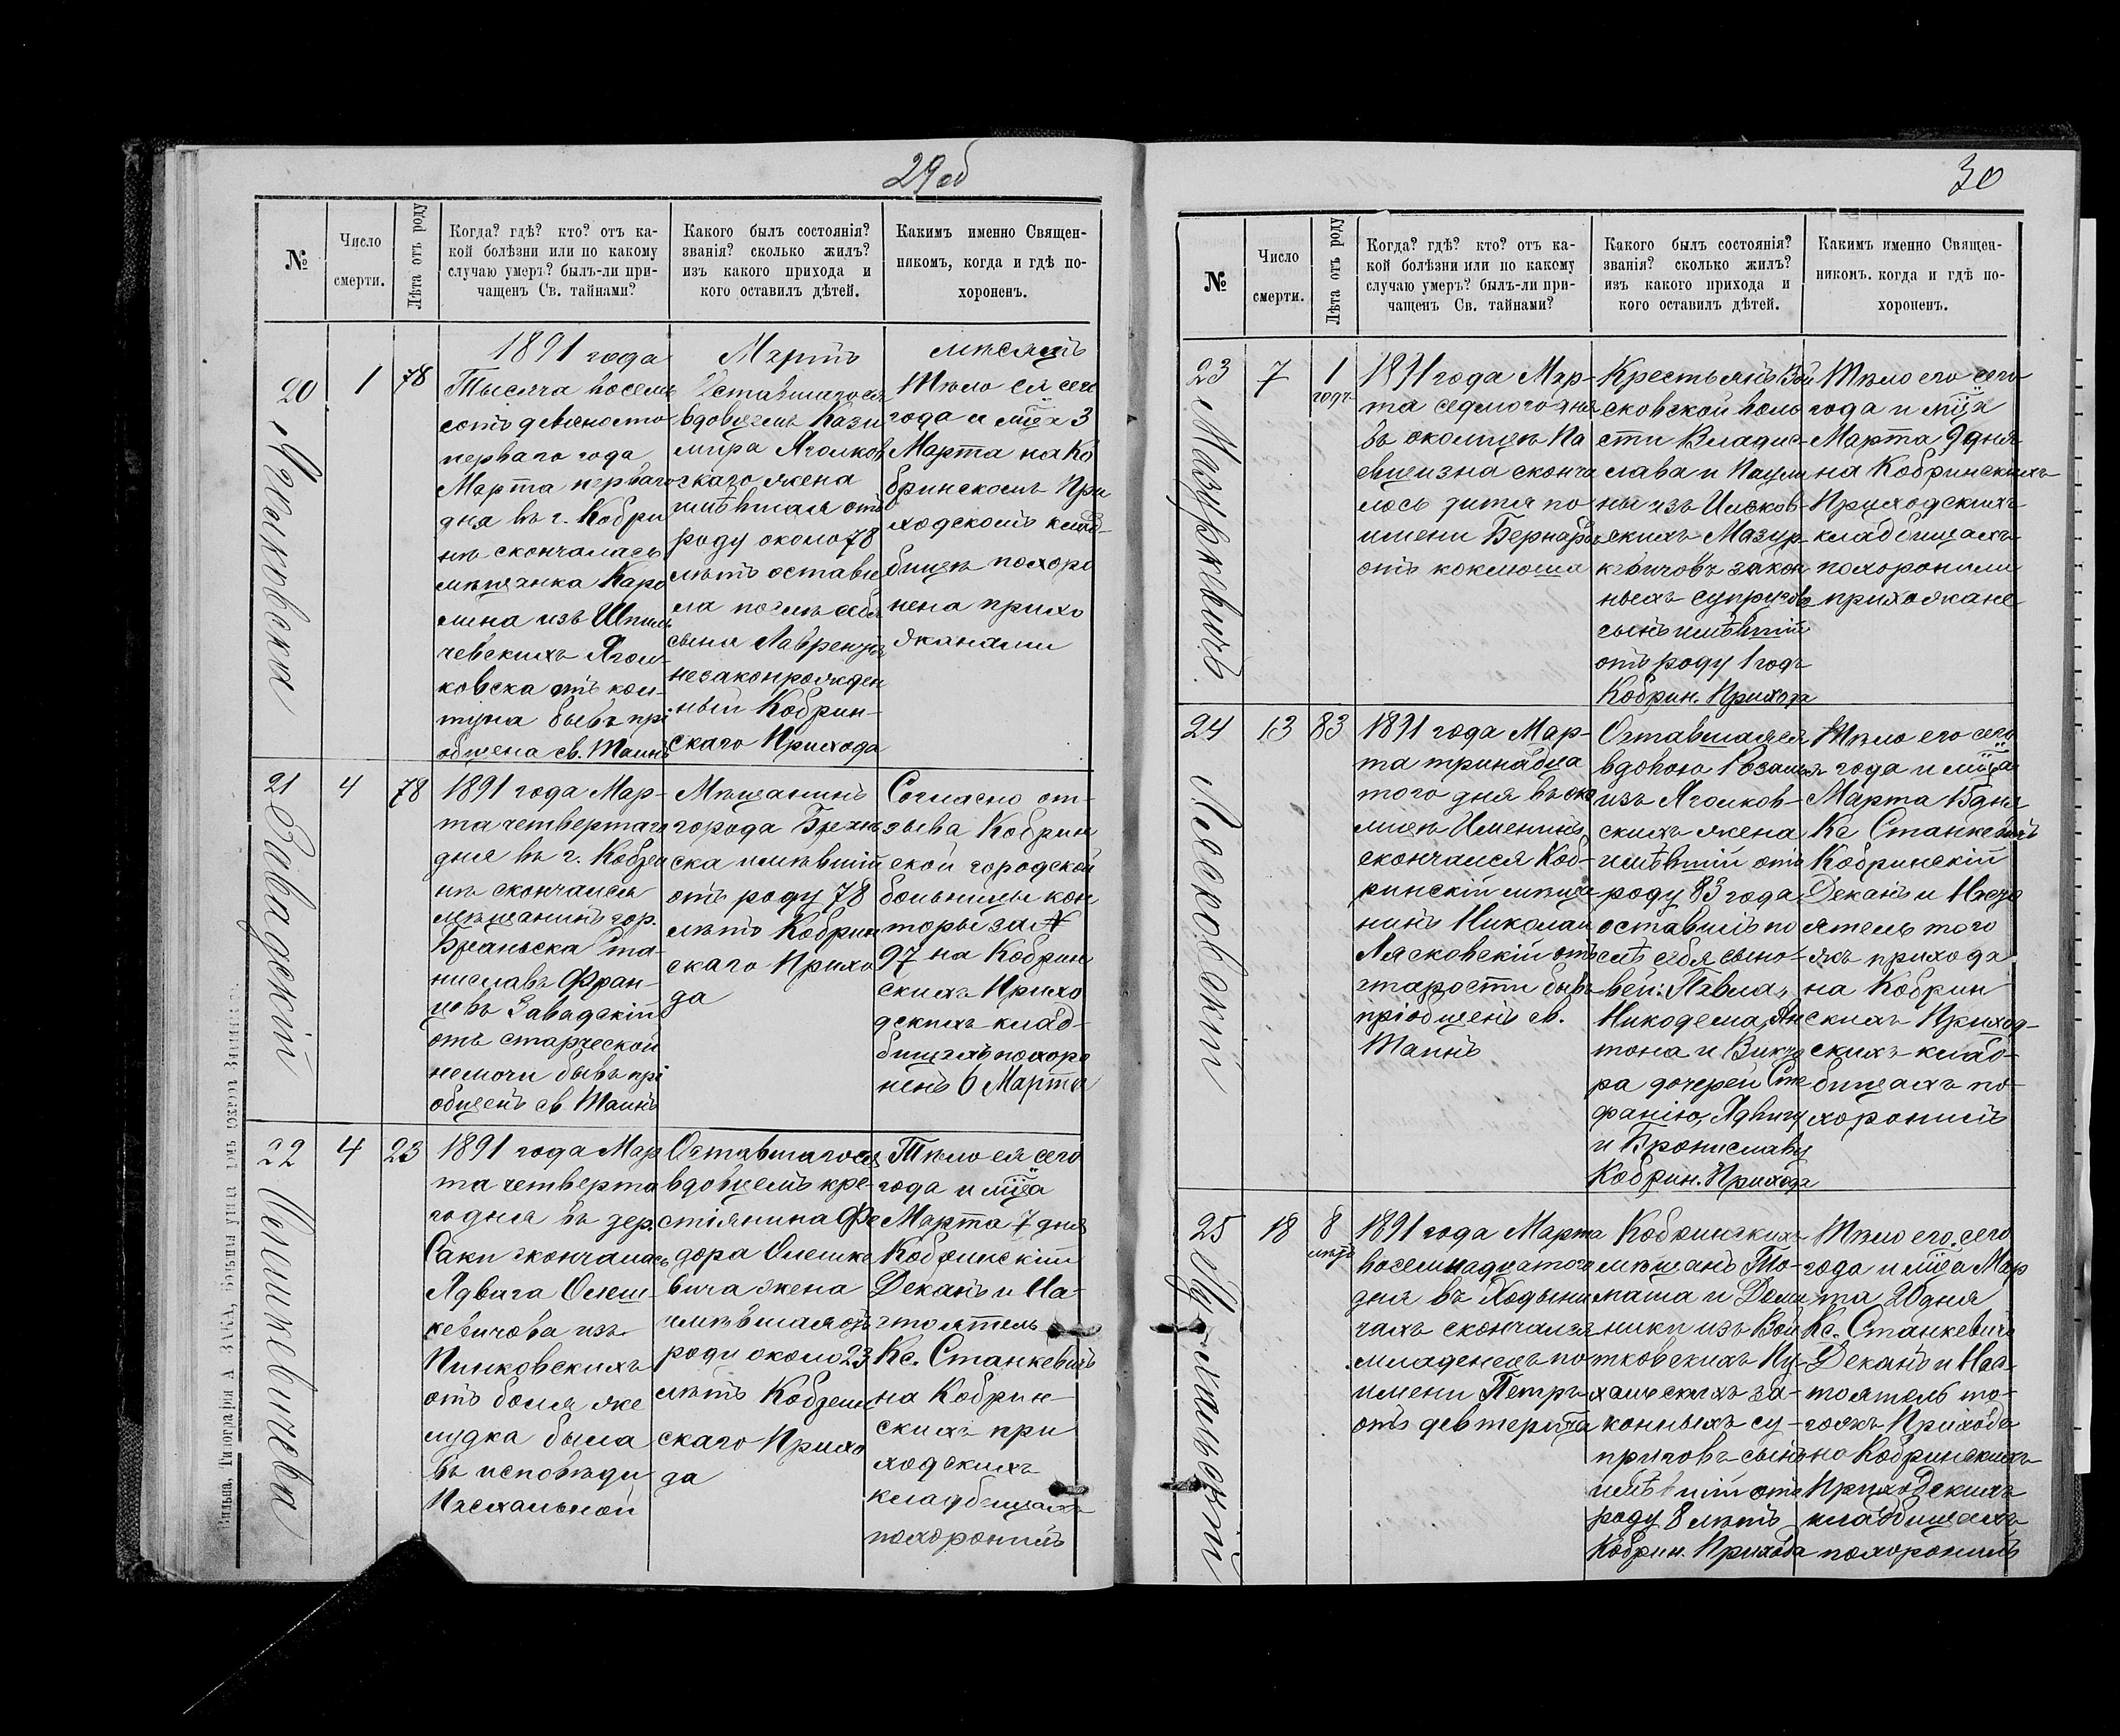 29об
№
Число
смерти.
Лѣта отъ роду
Когда? гдѣ? кто? отъ ка-
кой болѣзни или по какому
случаю умеръ? былъ-ли при-
чащенъ Св. тайнами?
Какого былъ состоянія?
званія? сколько жилъ?
изъ какого прихода и
кого оставилъ дѣтей.
Какимъ именно Священ-
никомъ, когда и гдѣ по-
хороненъ.
1891 года
Мартъ
мѣсяцъ
20
1
78
Тысяча восемь
сотъ девяносто
перваго года
Марта перваго
дня въ г. Кобри
нѣ скончалась
мѣщанка Каро
лина изъ
чевскихъ Ягол-
ковска отъ кол-
туна бывъ прі
общена св. Таинъ
Оставшагося
вдовцемъ Кази
мира Яголков
скаго жена
имѣвшая отъ
роду около 78
лѣтъ остави
ла послѣ себя
сына Лаврентія
незаконрожден
ный Кобрин-
скаго Прихода
Тѣло ея сего
года и мца 3
Марта на Ко
бринскомъ При
ходскомъ клад-
бищѣ похоро
нена прихо
жанами
21
Завадскій
4
78
1891 года Мар-
та четвертаго
дня въ г. Кобри
нѣ скончался
мѣщанинъ гор.
Бряньска Ста-
ниславъ Фран-
цовъ Завадскій
отъ старческой
немочи бывъ прі
общенъ св. Таинъ
Мѣщанинъ
города Брянь
ска имѣвшій
отъ роду 78
лѣтъ Кобрин
скаго Прихо
да
Согласно от-
зыва Кобрин
ской городской
больницы кон
торы за №
97 на Кобрин
скихъ Прихо
дскихъ клад-
бищахъ похоро
ненъ 6 Марта
22
Олешкевичева
4
23
1891 года Мар
та четверта
го дня въ дер.
Саки скончалась
Ядвига Олеш-
кевичова изъ
Пилковскихъ
отъ боля же
лудка была
въ исповѣди
Пасхальной
Оставшагося
вдовцемъ кре-
стіянина Фе
дора Олешке
вича жена
имѣвшая отъ
роди около 23
лѣтъ Кобрин
скаго Прихо
да
Тѣло ея сего
года и мца
Марта 7 дня
Кобринскій
Деканъ и На-
стоятель
Кс. Станкевичъ
на Кобрин-
скихъ при
ходскихъ
кладбищахъ
похоронилъ
30
№
Число
смерти.
Лѣта отъ роду
Когда? гдѣ? кто? отъ ка-
кой болѣзни или по какому
случаю умеръ? былъ-ли при-
чащенъ Св. тайнами?
Какого былъ состоянія?
званія? сколько жилъ?
изъ какого прихода и
кого оставилъ дѣтей.
Какимъ именно Священ-
никомъ. когда и гдѣ по-
хороненъ.
23
Мазуркевичъ.
7
1
годъ
1891 года Мар-
та седмого дня
въ околицѣ Па
евщизна сконча
лось дитя по
имени Бернардъ
отъ коклюша
Крестьянъ Вой
сковской воло
сти Владис-
слава и Паули
ны изъ
скихъ Мазур-
кевичовъ закон
ныхъ супруговъ
сынъ имѣвшій
отъ роду 1 годъ
Кобрин. Прихода
Тѣло его сего
года и мца
Марта 9 дня
на Кобринскихъ
Приходскихъ
кладбищахъ
похоронили
прихожане
24
Лясковскій
13
83
1891 года Мар-
та тринадца
того дня въ око
лицѣ Именинъ
скончался Коб-
ринскій мѣща
нинъ Николай
Лясковскій отъ
старости бывъ
пріобщенъ св.
Таинъ
Оставшаяся
вдовою Розалія
изъ Яголков-
скихъ жена
имѣвшій отъ
роду 83 года
оставилъ по
слѣ себя сыно-
вей: Павла,
Никодема, Ан
тона и Викто
ра дочерей Сте
фанію, Ядвигу
и Брониславу
Кобрин. Прихода
Тѣло его сего
года и мца
Марта 15 дня
Кс Станкевичъ
Кобринскій
Деканъ и Насто
ятель того
жъ прихода
на Кобрин
скихъ Приход-
скихъ клад-
бищахъ по-
хоронилъ
25
18
8
лѣтъ
1891 года Марта
восемнадцатого
дня въ Ходыни
чахъ скончался
младенецъ по
имени Петръ
отъ девтерита
Кобринскихъ
мѣщанъ То-
маша и Доми
ники изъ Вой
тковскихъ Пу-
хальскихъ за-
конныхъ су-
пруговъ сынъ
имѣвшій отъ
роду 8 лѣтъ
Кобрин. Прихода
Тѣло его сего
года и мца Мар
та 20 дня
Кс. Станкевичъ
Деканъ и Нас-
тоятель то-
гожъ Прихода
на Кобринскихъ
Приходскихъ
кладбищахъ
похоронилъ